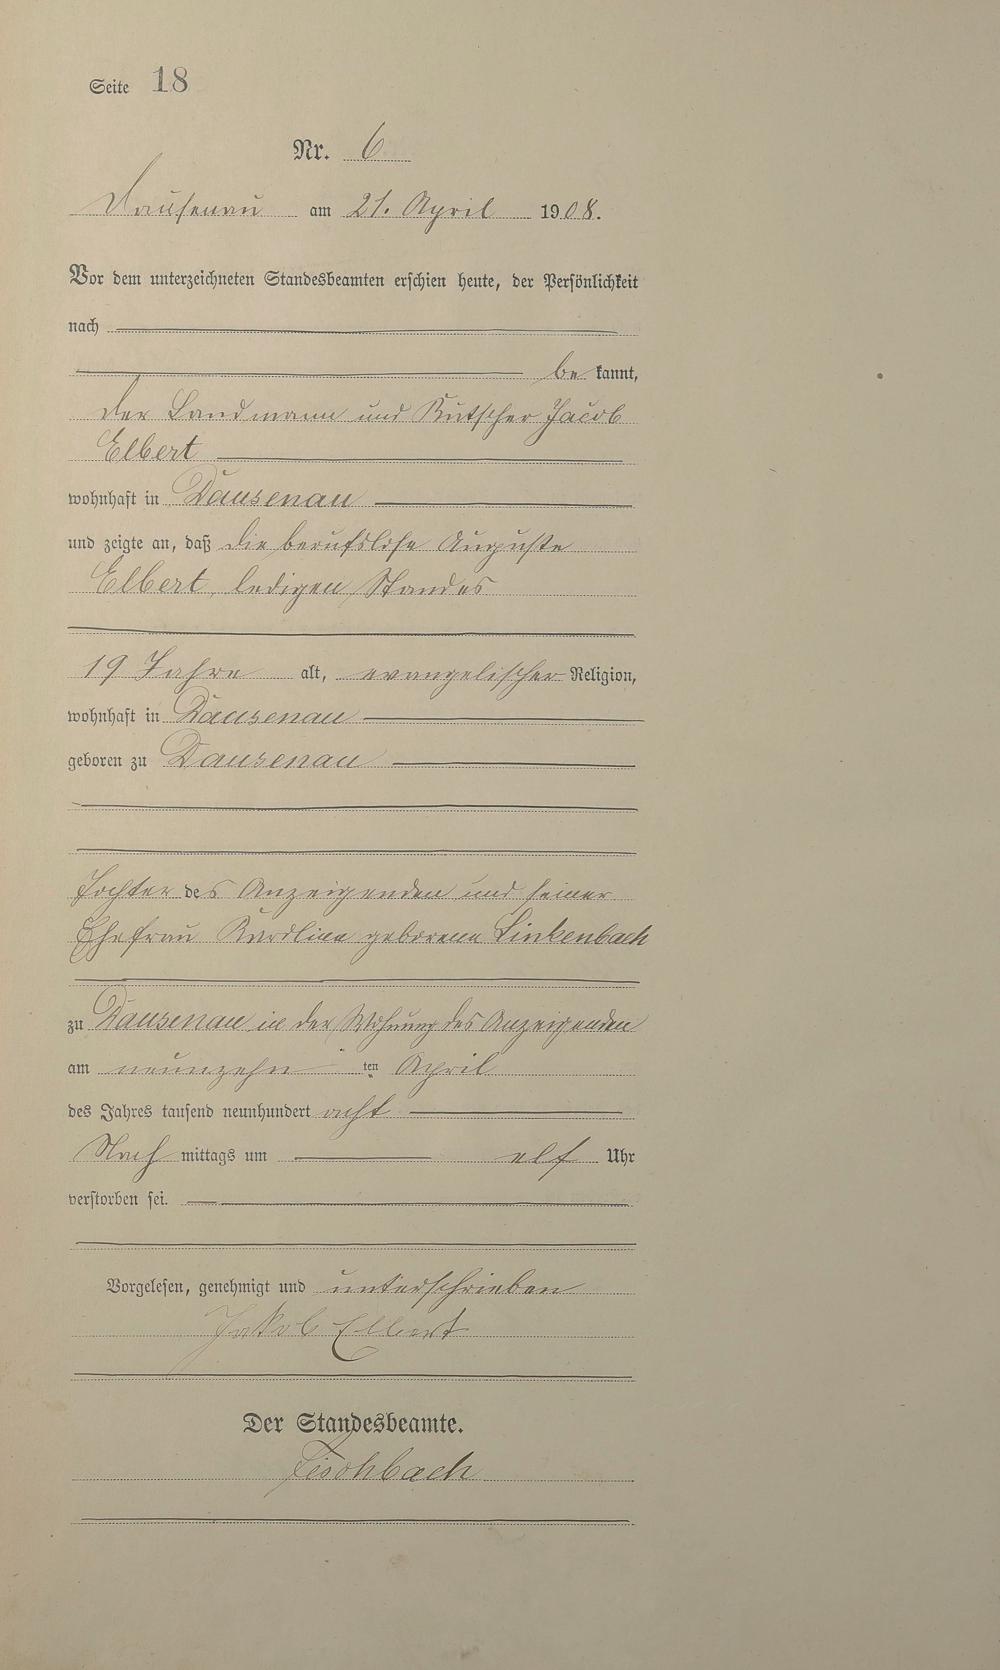 Seite 18
Nr. 6
Dausenau am 21. April 1908.
Vor dem unterzeichneten Standesbeamten erschien heute, der Persönlichkeit
nach
bekannt,
der Landmann und Kutscher Jacob
Elbert
wohnhaft in Dausenau
und zeigte an, daß die berufslose Auguste
Elbert, ledigen Standes
19 Jahre alt, evangelischer Religion,
wohnhaft in Dausenau
geboren zu Dausenau
Tochter des Anzeigenden und seiner
Ehefrau Karoline geborenen Linkenbach
zu Dausenau in der Wohnung des Anzeigenden
am neunzehnten April
des Jahres tausend neunhundert acht
Nachmittags um elf Uhr
verstorben sei.
Vorgelesen, genehmigt und unterschrieben
Jakob Elbert
Der Standesbeamte.
Fischbach